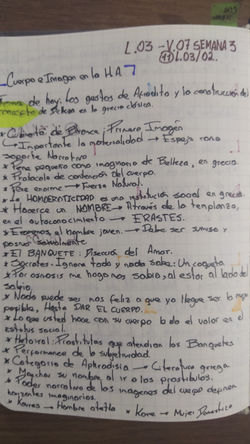 L.03 - V.07 SEMANA 3
11 L.03/02.
Cuerpo e Imagen en la HA
Tema de hoy: Los gestos de Afrodita y la construcción del
concepto de en la grecia clásica.
* Cubeta de Bronce: Primera Imagen
Importante la materialidad → Espejo como
soporte Narrativo
* Pene pequeño como imaginario de Belleza, en grecia.
* Protocolo de contención del cuerpo.
* Pose enorme → Fuerza Natural.
* La HOMOEROTICIDAD es una institución social en grecia.
* Hacerse un NOMBRE → A través de la templanza,
en el autoconocimiento → ERASTES.
* Erómenos, al hombre joven. → Debe ser sumiso y
pasivo sexualmente
* EL BANQUETE: Discurso del Amor.
* Sócrates: Ignora todo y nada sabe: Un coqueto
* Por osmosis me hago más sabio, al estar al lado del
sabio.
* Nada puede ser más feliz a que yo llegue ser lo mejor
posible, Hasta DAR EL CUERPO.
* Lo que usted hace con su cuerpo le da el valor en el
estatus social.
* Hetairai: Prostitutas que atendían los Banquetes
* Performance de la subjetividad.
* Categoría de Aphrodisia → Literatura griega.
* Manchar su nombre al ir a los prostíbulos.
* Poder narrativo de las imágenes del cuerpo definen
horizontes imaginarios.
* Kouros → Hombre atleta * Kore → Mujer Doméstica